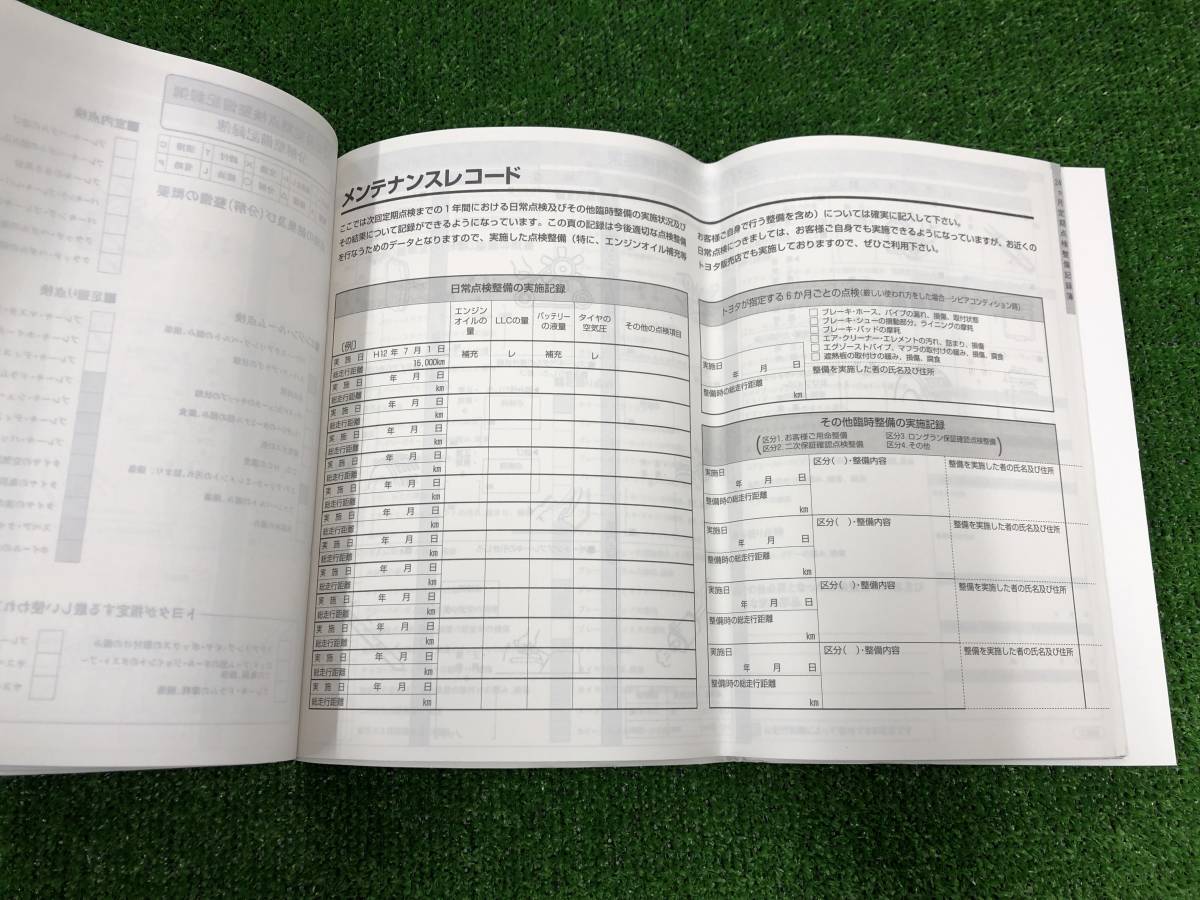 メンテナンスレコード
ここでは次回定期点検までの1年間における日常点検及びその他臨時整備の実施状況及び
その結果について記録ができるようになっています。この頁の記録は今後適切な点検整備
を行なうためのデータとなりますので、実施した点検整備(特に、エンジンオイル補充等
お客様ご自身で行う整備を含め)については確実に記入して下さい。
日常点検につきましては、お客様ご自身でも実施できるようになっていますが、お近くの
トヨタ販売店でも実施しておりますので、ぜひご利用下さい。
日常点検整備の実施記録
エンジンオイルの量 LLCの量 バッテリーの液量 タイヤの空気圧 その他の点検項目
〔例〕
実施日 H12年7月1日 補充 レ 補充 レ
総走行距離 16,000km
実施日 年 月 日
総走行距離 km
実施日 年 月 日
総走行距離 km
実施日 年 月 日
総走行距離 km
実施日 年 月 日
総走行距離 km
実施日 年 月 日
総走行距離 km
実施日 年 月 日
総走行距離 km
実施日 年 月 日
総走行距離 km
実施日 年 月 日
総走行距離 km
実施日 年 月 日
総走行距離 km
実施日 年 月 日
総走行距離 km
実施日 年 月 日
総走行距離 km
実施日 年 月 日
総走行距離 km
トヨタが指定する6か月ごとの点検(厳しい使われ方をした場合―シビアコンディション時)
□ブレーキ・ホース、パイプの漏れ、損傷、取付状態
□ブレーキ・シューの摺動部分、ライニングの摩耗
□ブレーキ・パッドの摩耗
□エア・クリーナー・エレメントの汚れ、詰まり、損傷
□エグゾーストパイプ、マフラの取付けの緩み、損傷、腐食
□遮熱板の取付けの緩み、損傷、腐食
実施日
年 月 日
整備時の総走行距離
km
整備を実施した者の氏名及び住所
その他臨時整備の実施記録
区分1.お客様ご用命整備 区分3.ロングラン保証確認点検整備
区分2.二次保証確認点検整備 区分4.その他
実施日 区分( )・整備内容 整備を実施した者の氏名及び住所
年 月 日
整備時の総走行距離
km
実施日 区分( )・整備内容 整備を実施した者の氏名及び住所
年 月 日
整備時の総走行距離
km
実施日 区分( )・整備内容 整備を実施した者の氏名及び住所
年 月 日
整備時の総走行距離
km
実施日 区分( )・整備内容 整備を実施した者の氏名及び住所
年 月 日
整備時の総走行距離
km
24ヵ月定期点検整備記録簿